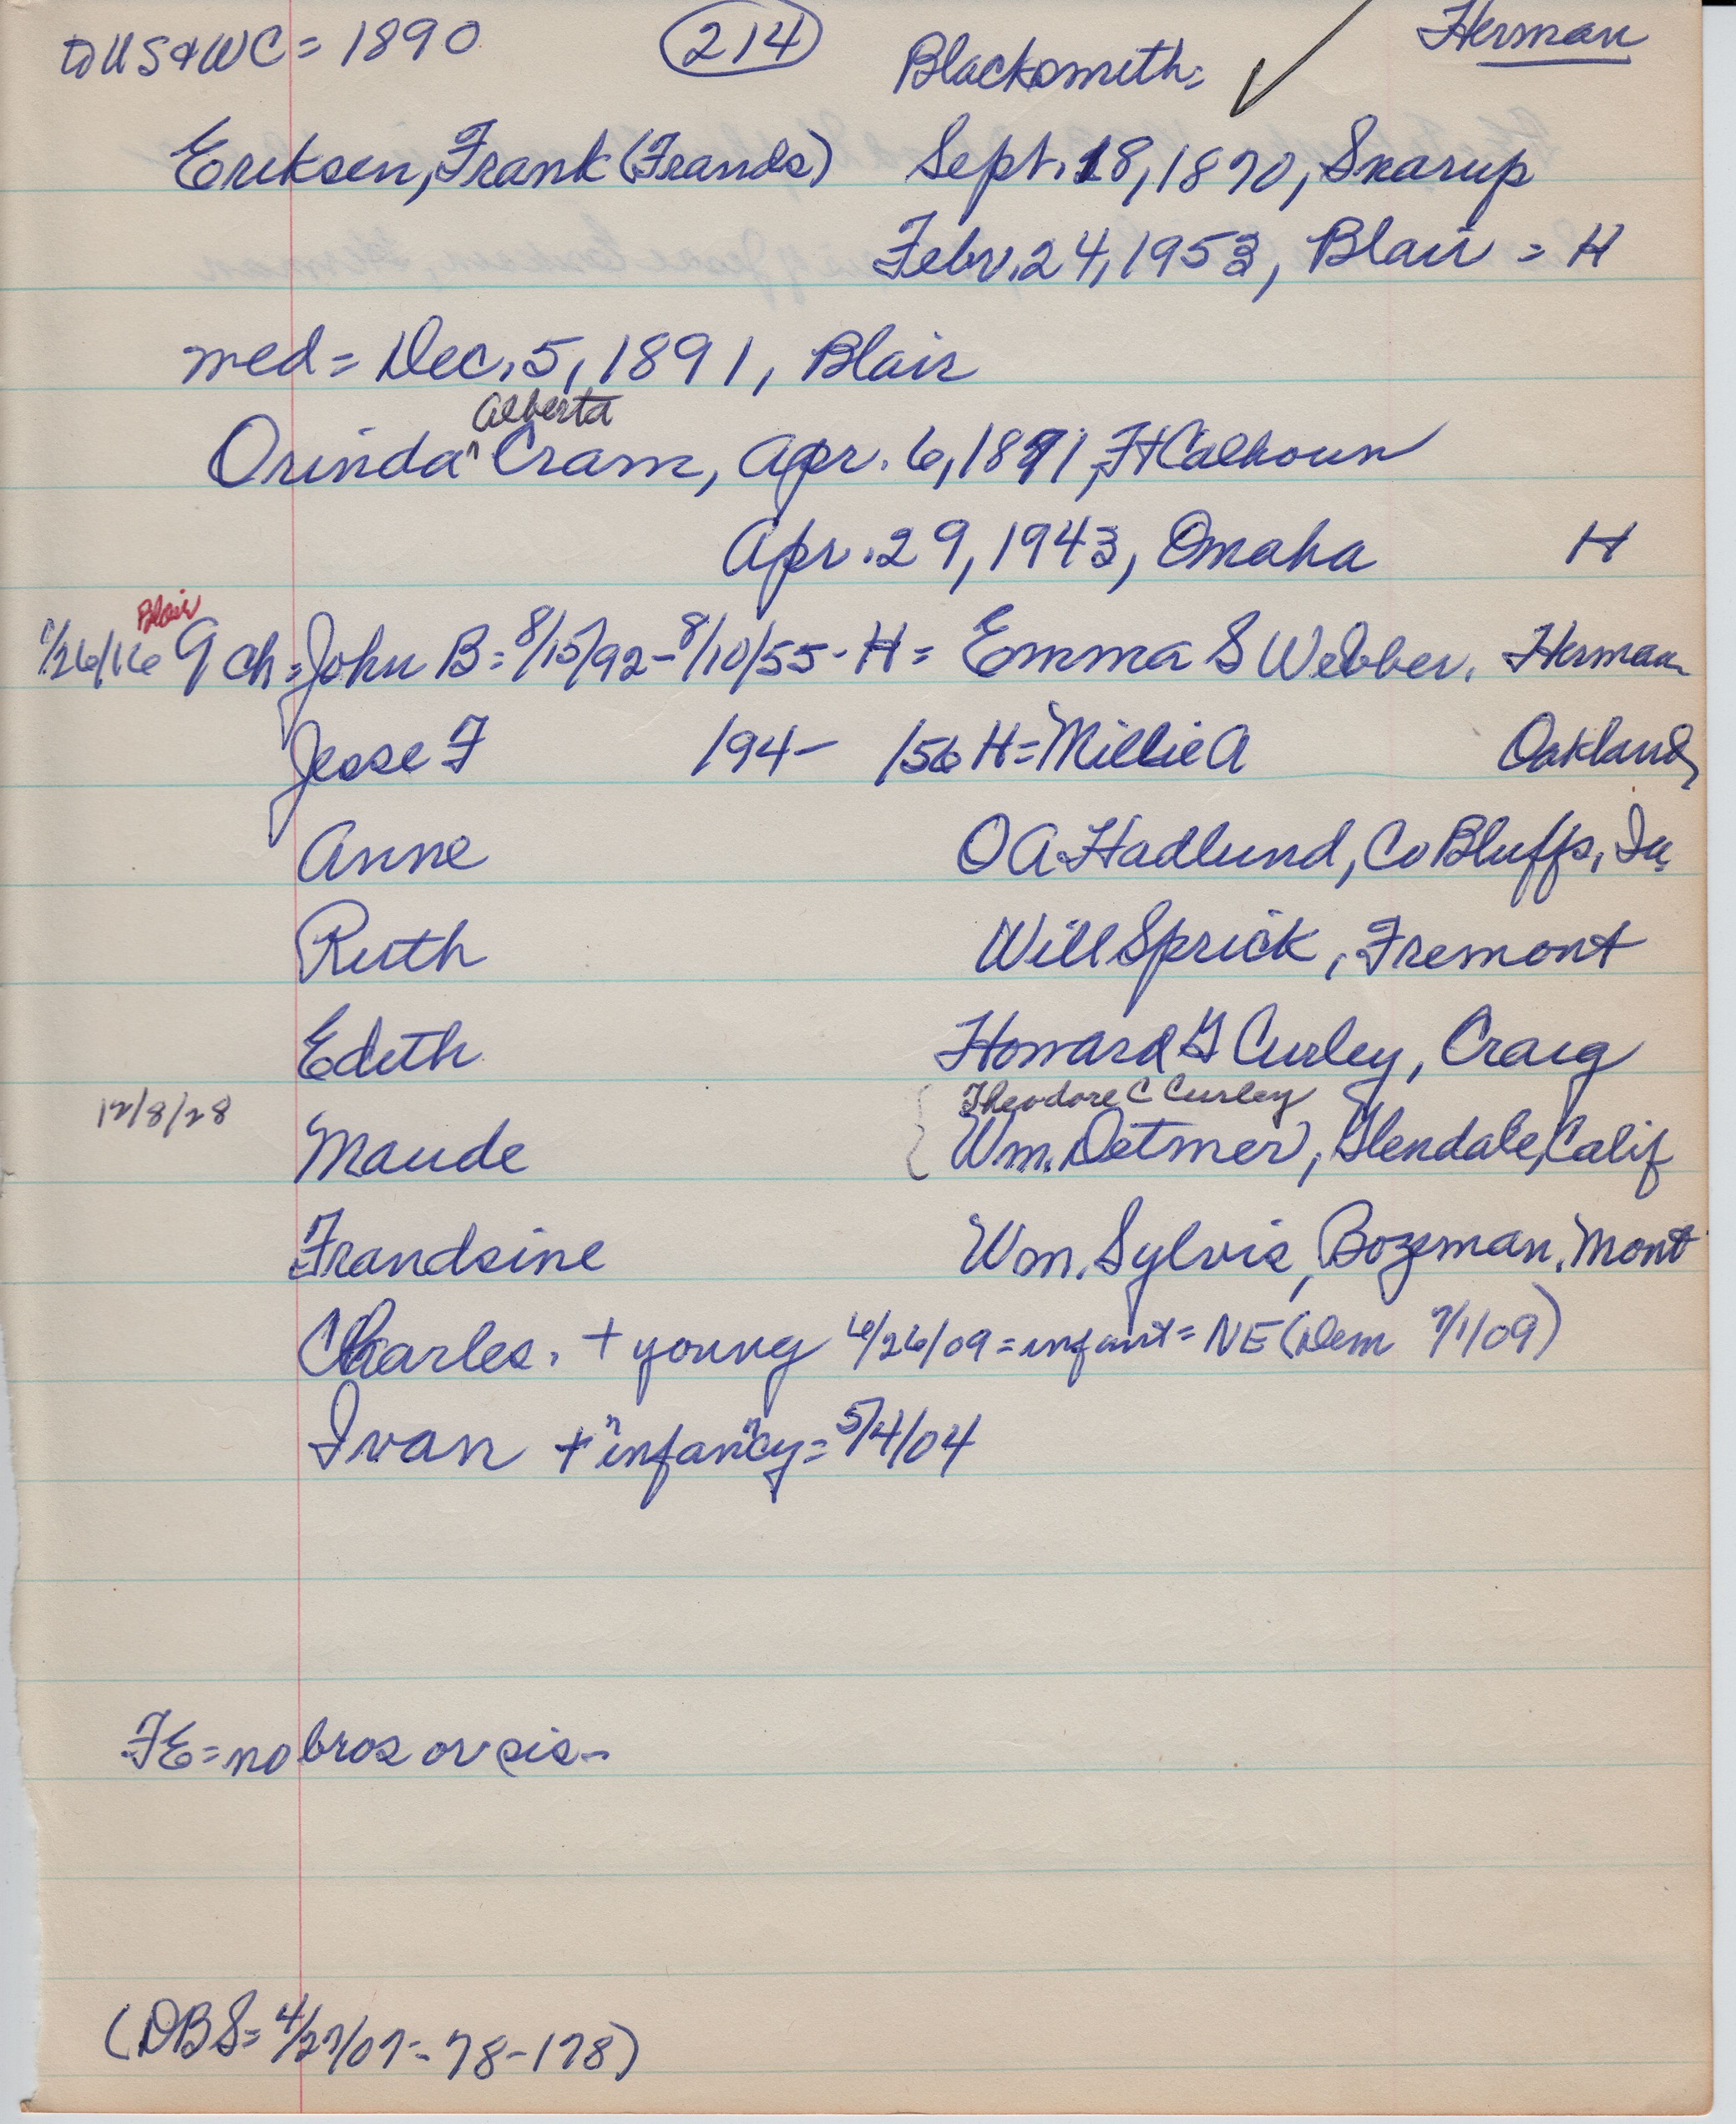 to US & WC = 1890 (214) Blacksmith: ✓ Herman
Eriksen, Frank (Frands) Sept. 18, 1870, Snarup
Febr. 24, 1953, Blair = H
med = Dec. 5, 1891, Blair
Alberta
Orinda ^ Cram, Apr. 6, 1871, Ft Calhoun
Apr. 29, 1943, Omaha H
Blair
1/26/16 9 ch = John B = 8/15/92 - 8/10/55 - H = Emma S Webber, Herman
Jesse F 194- 156 H = Millie A Oakland,
Anne O A Hadlund, Co Bluffs, Ia,
Ruth Will Sprick, Fremont
Edith Howard G Curley, Craig
Theodore C Curley
12/8/28 Maude { Wm. Detmer, Glendale, Calif
Frandsine Wm. Sylvis, Bozeman, Mont
Charles. + young 6/26/09 = infant = NE (Dem 7/1/09)
Ivan + "infancy" = 5/4/04
FE = no bros or sis -
(DBS = 4/27/07 - 78 - 178)